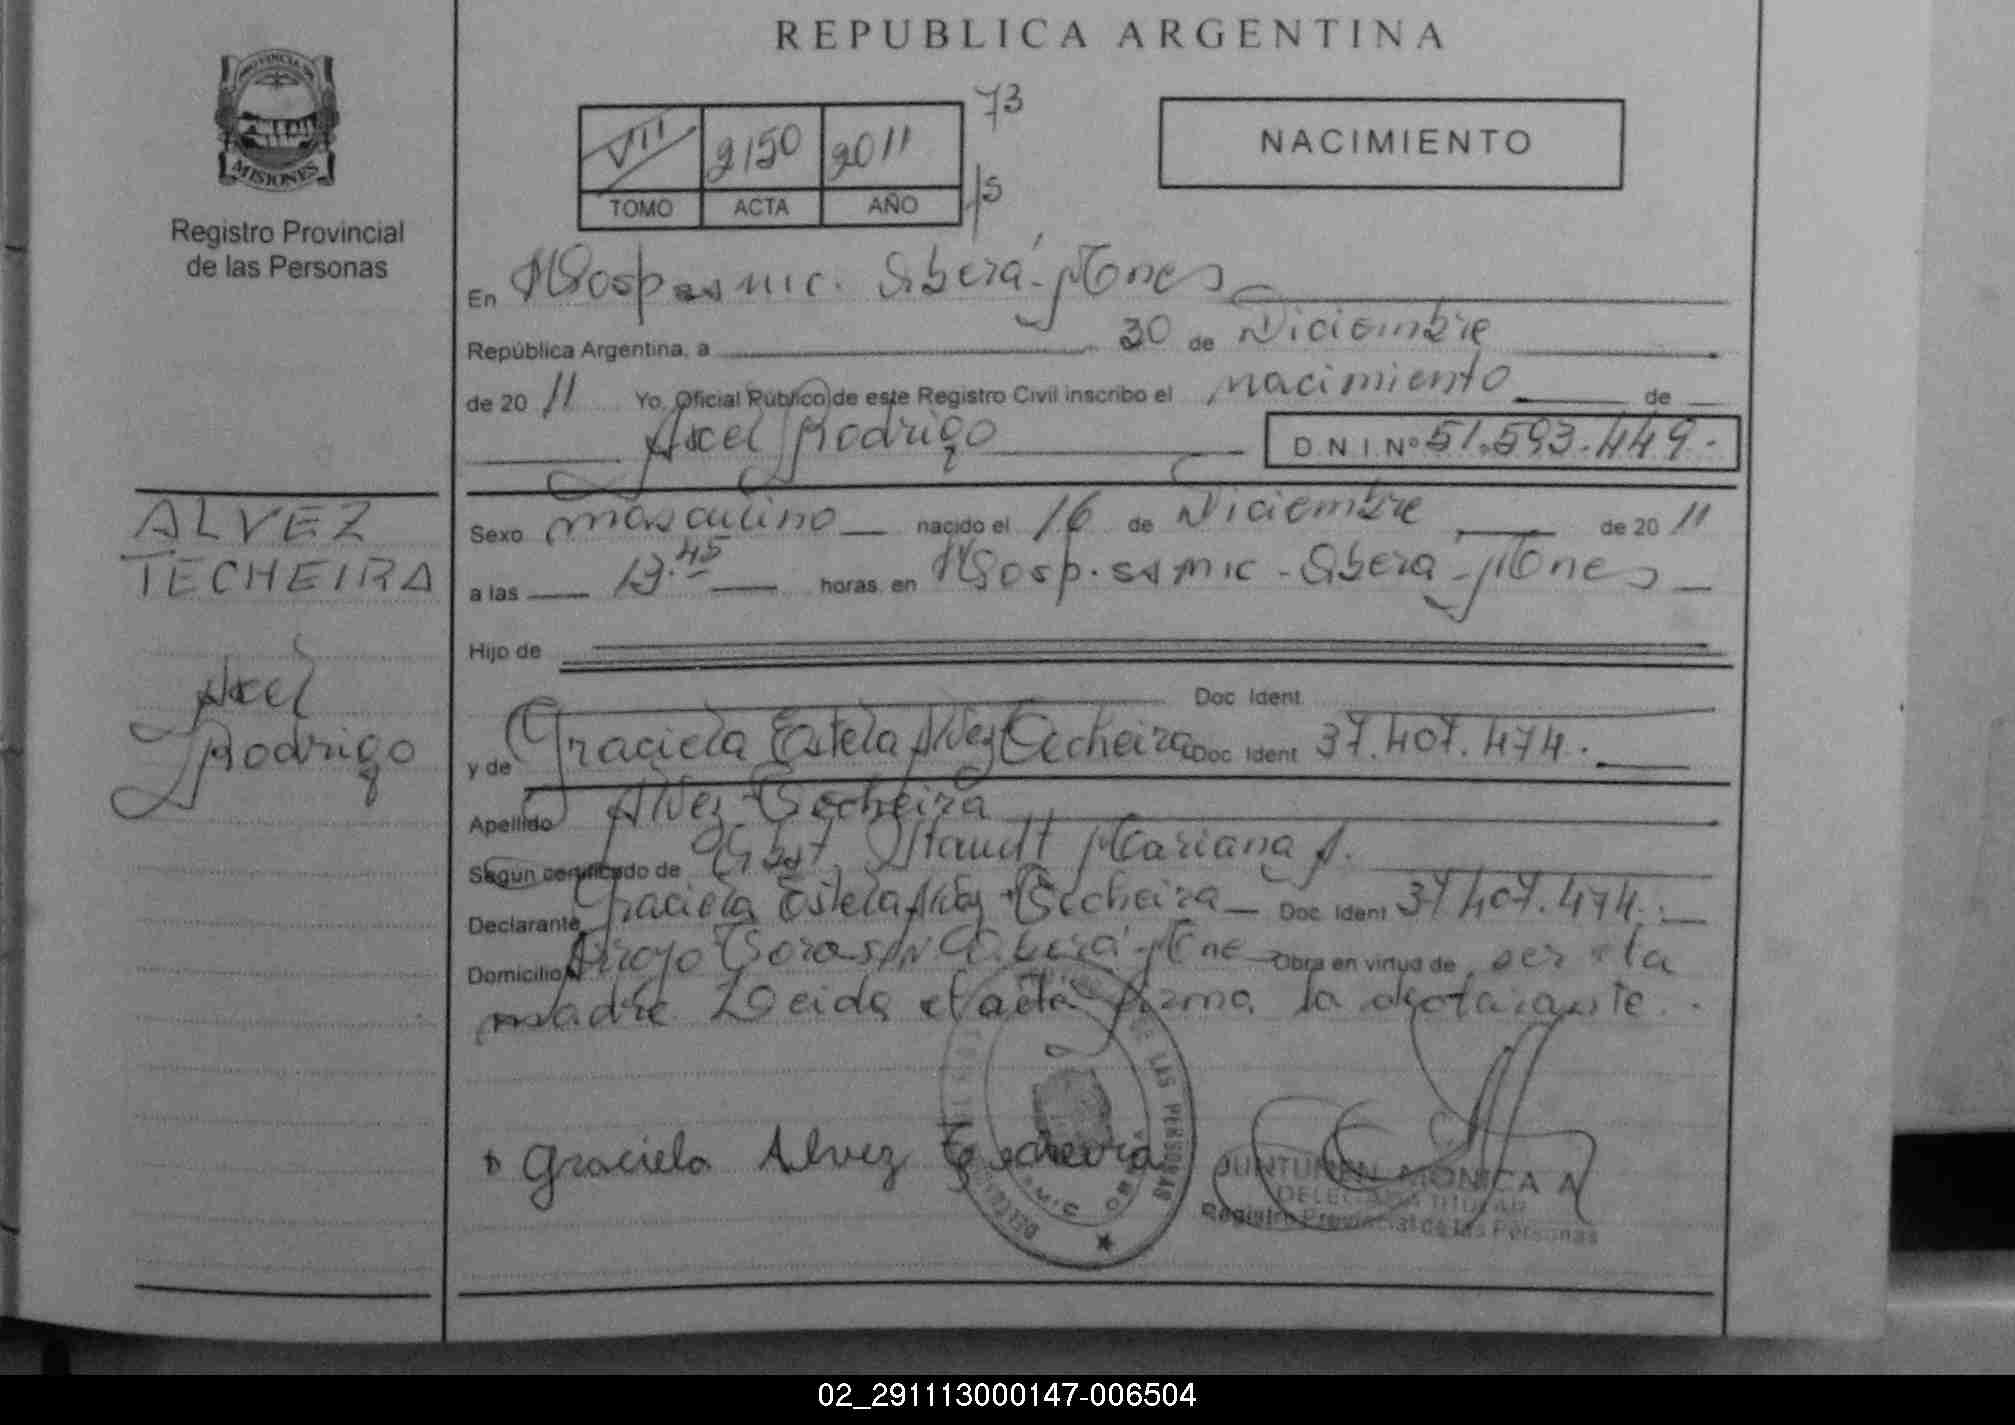 REPUBLICA ARGENTINA
PROVINCIA DE
MISIONES
Registro Provincial
de las Personas
VII 2150 2011
TOMO ACTA AÑO
73
15
NACIMIENTO
En Hosp. samic. Oberá-Mones
República Argentina, a 30 de Diciembre
de 20 11 Yo, Oficial Público de este Registro Civil inscribo el nacimiento de
Axel Rodrigo D.N.I.Nº 51.593.449.
ALVEZ
TECHEIRA
Axel
Rodrigo
Sexo masculino nacido el 16 de Diciembre de 20 11
a las 13.45 horas, en Hosp. samic - Oberá - Mones
Hijo de
Doc Ident
y de Graciela Estela Alvez Techeira Doc Ident 37.407.474.
Apellido Alvez Techeira
Según certificado de Obst. Mariana A.
Declarante Graciela Estela Alvez Techeira Doc Ident 37.407.474.
Domicilio Arroyo Oberá-Mnes Obra en virtud de ser la
madre Leida el acta firma la declarante.
Graciela Alvez Techeira
DE LAS PERSONAS
JUNTUNEN MONICA A
DELEGADA TITULAR
Registro Provincial de las Personas
02_291113000147-006504